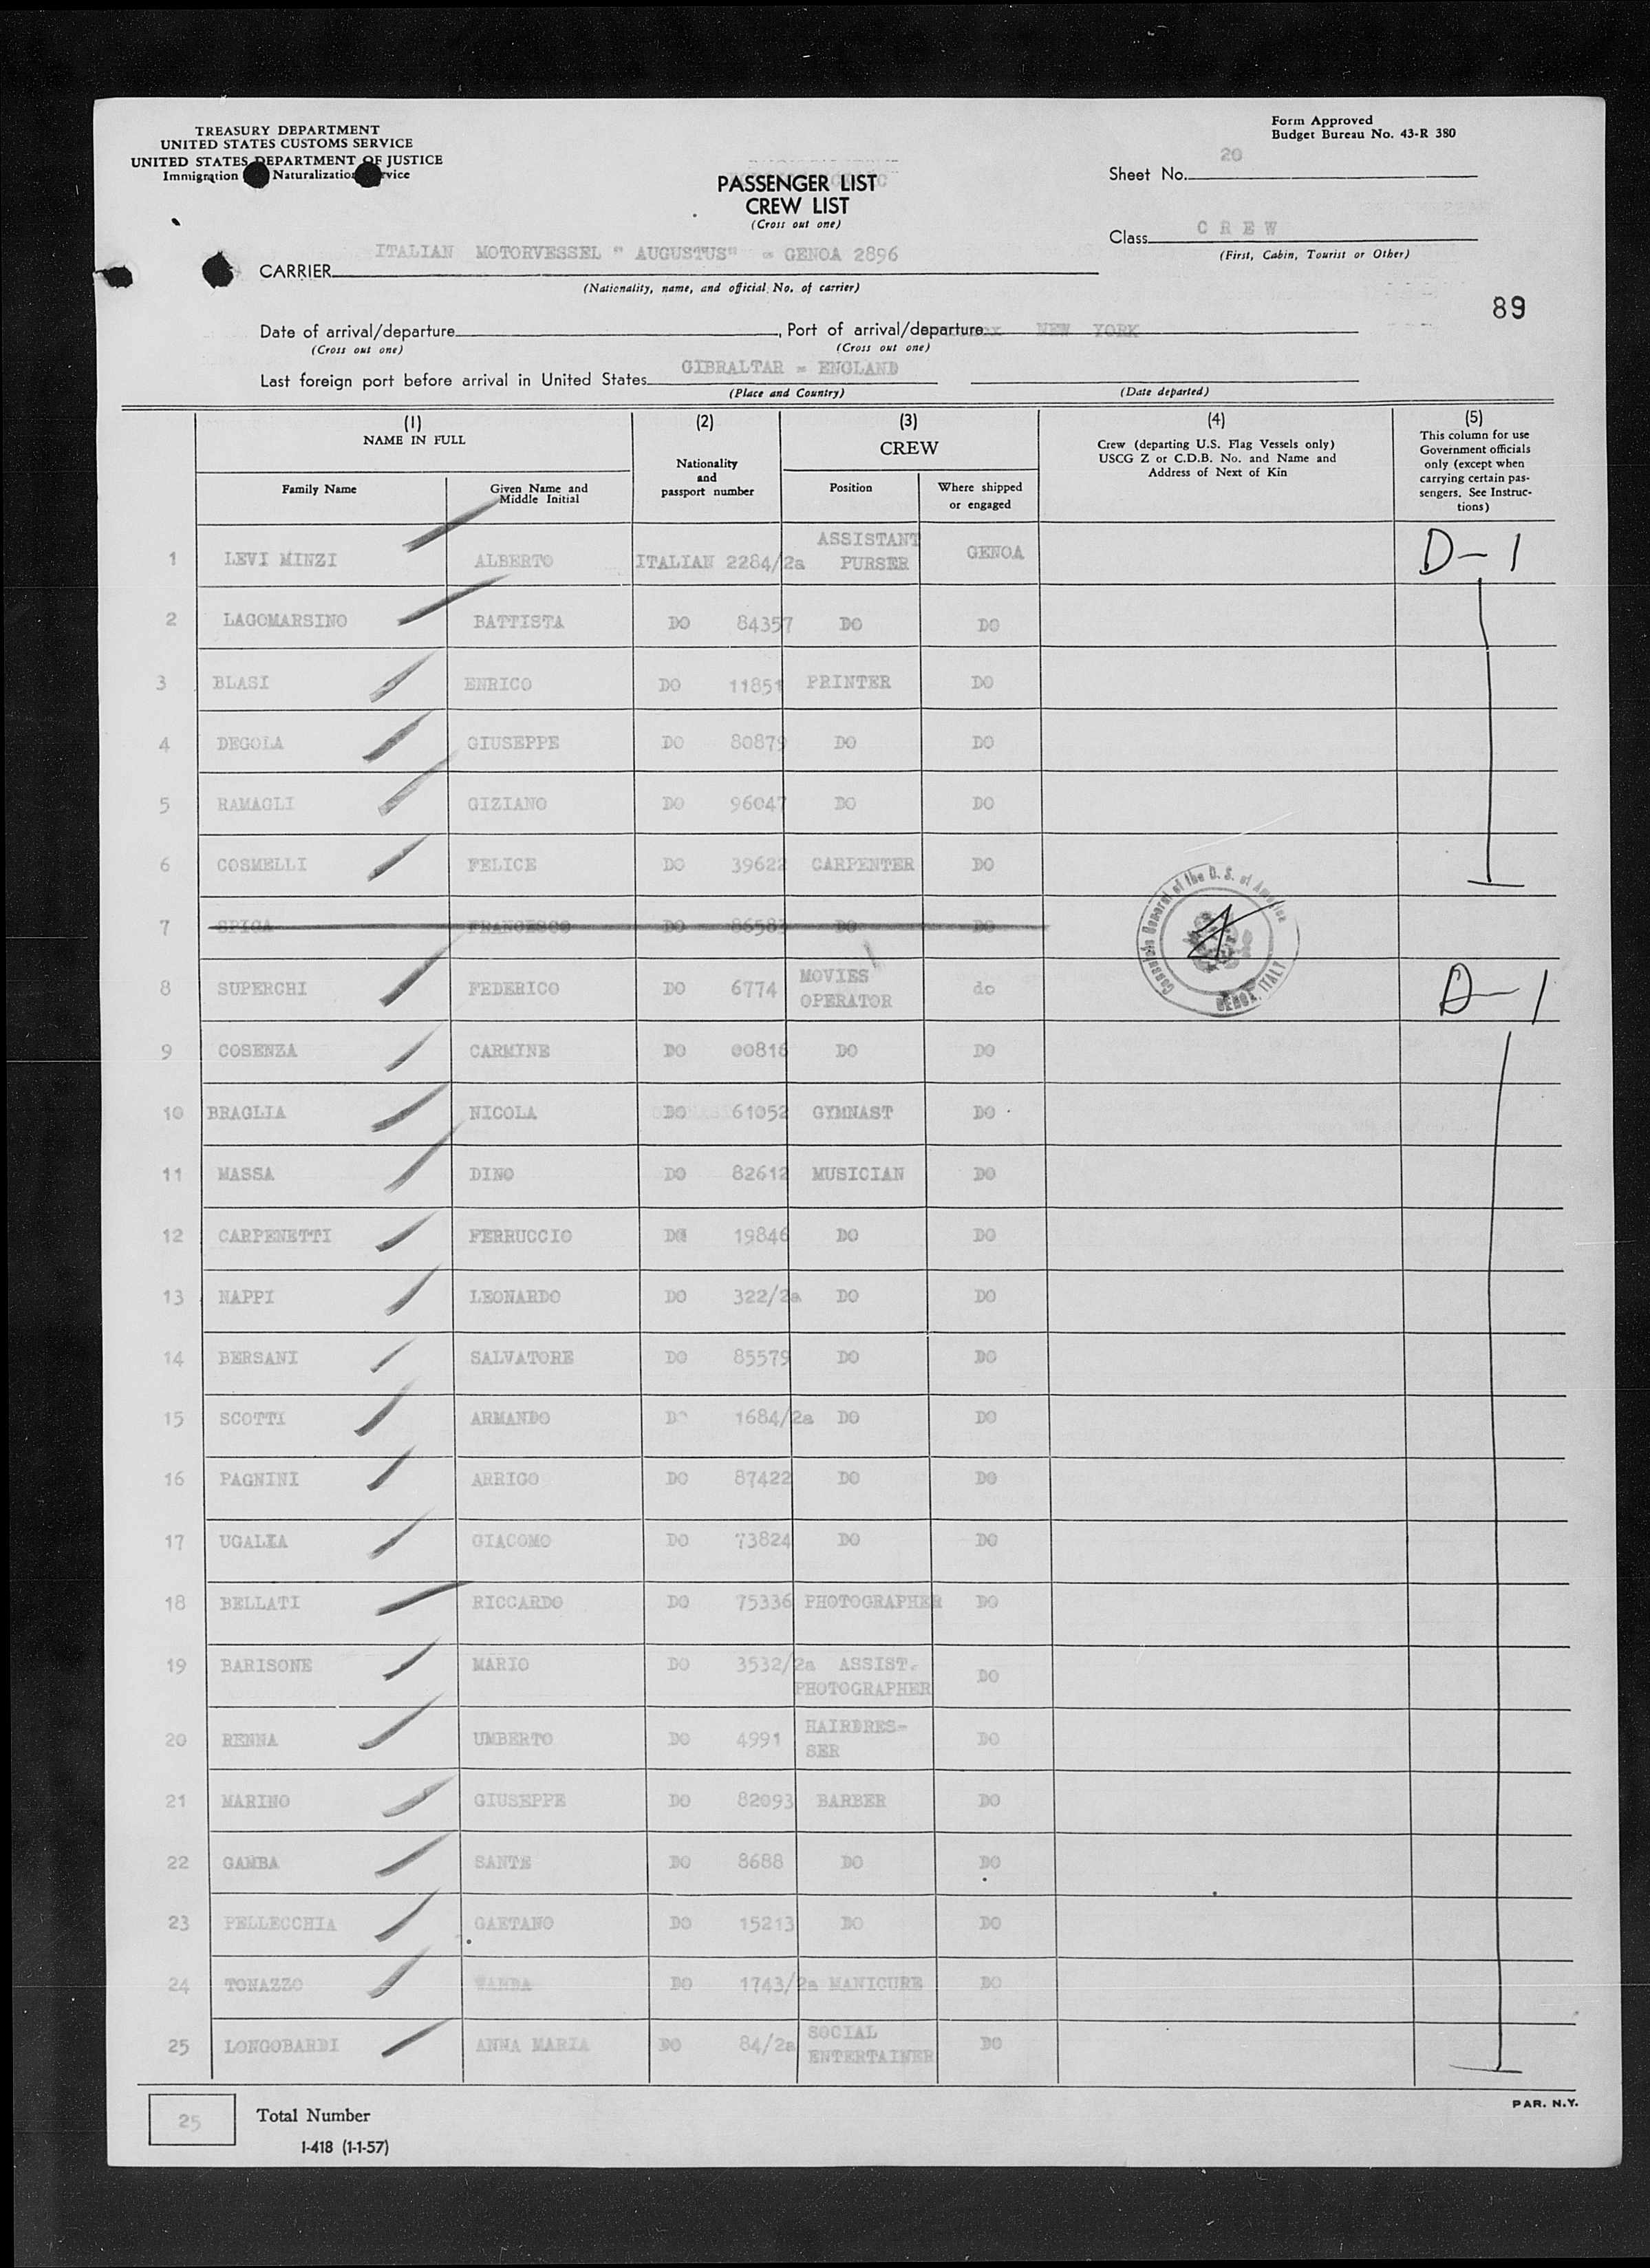 TREASURY DEPARTMENT
UNITED STATES CUSTOMS SERVICE
UNITED STATES DEPARTMENT OF JUSTICE
Immigration Naturalization rvice
Form Approved
Budget Bureau No. 43-R 380
PASSENGER LIST
CREW LIST
(Cross out one)
Sheet No. 20
Class CREW
(First, Cabin, Tourist or Other)
CARRIER ITALIAN MOTORVESSEL " AUGUSTUS" = GENOA 2896
(Nationality, name, and official No. of carrier)
89
Date of arrival/departure , Port of arrival/departure NEW YORK
(Cross out one) (Cross out one)
Last foreign port before arrival in United States GIBRALTAR = ENGLAND
(Place and Country) (Date departed)
(1) (2) (3) (4) (5)
NAME IN FULL Nationality and passport number CREW Crew (departing U.S. Flag Vessels only) USCG Z or C.D.B. No. and Name and Address of Next of Kin This column for use Government officials only (except when carrying certain passengers. See Instructions)
Family Name Given Name and Middle Initial Position Where shipped or engaged
1 LEVI MINZI ALBERTO ITALIAN 2284/2a ASSISTANT PURSER GENOA D-1
2 LAGOMARSINO BATTISTA DO 84357 DO DO
3 BLASI ENRICO DO 11851 PRINTER DO
4 DEGOLA GIUSEPPE DO 80879 DO DO
5 RAMAGLI GIZIANO DO 96047 DO DO
6 COSMELLI FELICE DO 39622 CARPENTER DO
7 SPIGA FRANCESCO DO 86583 DO DO
Consulate General of the U. S. of America
GENOA, ITALY
8 SUPERCHI FEDERICO DO 6774 MOVIES OPERATOR do D-1
9 COSENZA CARMINE DO 00816 DO DO
10 BRAGLIA NICOLA DO 61052 GYMNAST DO
11 MASSA DINO DO 82612 MUSICIAN DO
12 CARPENETTI FERRUCCIO DO 19846 DO DO
13 NAPPI LEONARDO DO 322/2a DO DO
14 BERSANI SALVATORE DO 85579 DO DO
15 SCOTTI ARMANDO DO 1684/2a DO DO
16 PAGNINI ARRIGO DO 87422 DO DO
17 GIACOMO DO 73824 DO DO
18 BELLATI RICCARDO DO 75336 PHOTOGRAPHER DO
19 BARISONE MARIO DO 3532/2a ASSIST. PHOTOGRAPHER DO
20 RENNA UMBERTO DO 4991 HAIRDRES-SER DO
21 MARINO GIUSEPPE DO 82093 BARBER DO
22 GAMBA SANTE DO 8688 DO DO
23 PELLECCHIA GAETANO DO 15213 DO DO
24 TONAZZO WANDA DO 1743/2a MANICURE DO
25 LONGOBARDI ANNA MARIA DO 84/2a SOCIAL ENTERTAINER DO
25 Total Number
I-418 (1-1-57)
PAR. N.Y.